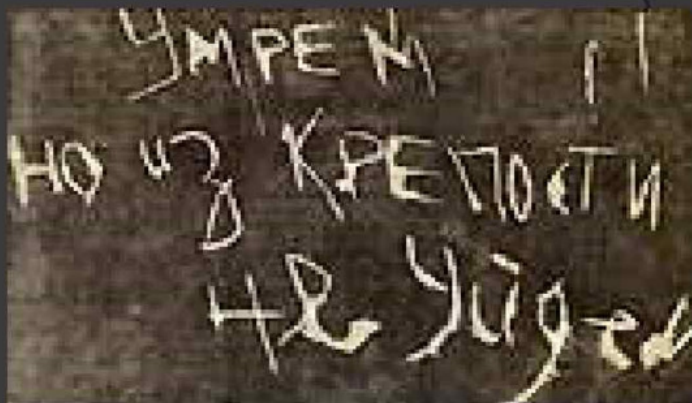 УМРЕМ
НО из КРЕПОСТИ
Не Уйдем